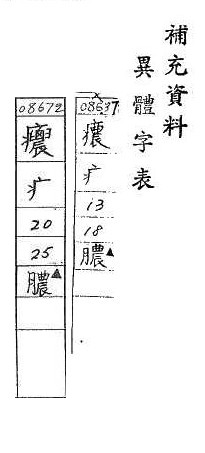 補充資料
異體字表
08637
癑
疒
13
18
膿▲
08672
疒
20
25
膿▲